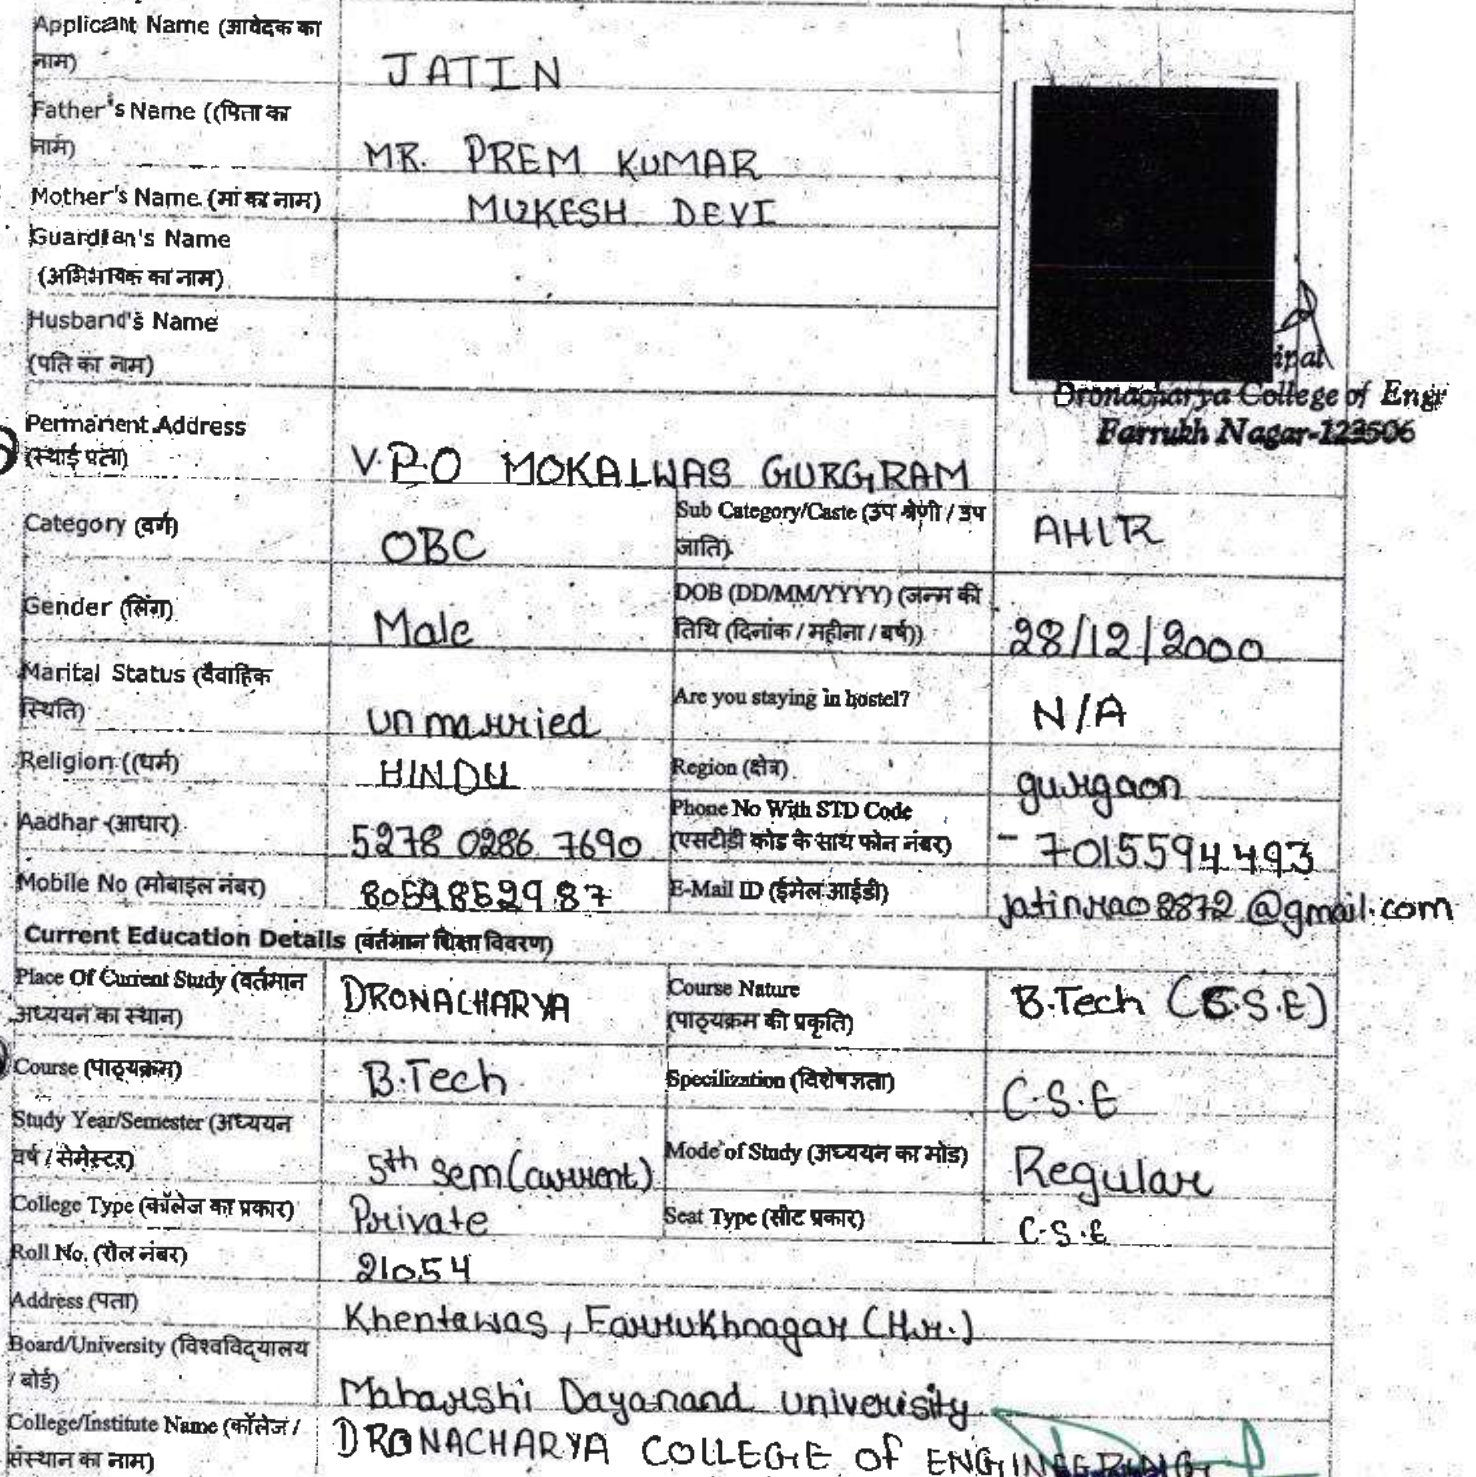 Applicant Name (आवेदक का
नाम) JATIN
Father's Name ((पिता का
नाम) MR. PREM KUMAR
Mother's Name (मां का नाम) MUKESH DEVI
Guardian's Name
(अभिभावक का नाम)
Husband's Name
(पति का नाम)
ipal
Dronacharya College of Engr
Farrukh Nagar-123506
Permanent Address
(स्थाई पता) V.P.O MOKALWAS GURGRAM
Category (वर्ग) OBC Sub Category/Caste (उप श्रेणी / उप
जाति) AHIR
Gender (लिंग) Male DOB (DD/MM/YYYY) (जन्म की
तिथि (दिनांक / महीना / वर्ष)) 28/12/2000
Marital Status (वैवाहिक
स्थिति) unmarried Are you staying in hostel? N/A
Religion ((धर्म) HINDU Region (क्षेत्र) gurgaon
Aadhar (आधार) 5278 0286 7690 Phone No With STD Code
(एसटीडी कोड के साथ फोन नंबर) - 7015594493
Mobile No (मोबाइल नंबर) 8059852987 E-Mail ID (ईमेल आईडी) jatinrao2872@gmail.com
Current Education Details (वर्तमान शिक्षा विवरण)
Place Of Current Study (वर्तमान
अध्ययन का स्थान) DRONACHARYA Course Nature
(पाठ्यक्रम की प्रकृति) B.Tech (C.S.E)
Course (पाठ्यक्रम) B.Tech Specilization (विशेषज्ञता) C.S.E
Study Year/Semester (अध्ययन
वर्ष / सेमेस्टर) 5th sem (current) Mode of Study (अध्ययन का मोड) Regular
College Type (कॉलेज का प्रकार) Private Seat Type (सीट प्रकार) C.S.E
Roll No. (रोल नंबर) 21054
Address (पता) Khentawas, Farrukhnagar (Hr.)
Board/University (विश्वविद्यालय
/ बोर्ड) Maharshi Dayanand univerisity
College/Institute Name (कॉलेज /
संस्थान का नाम) DRONACHARYA COLLEGE Of ENGINEERING